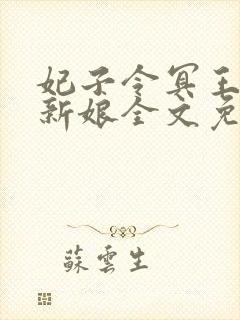 妃子令冥王
新娘全文免
蘇雲生